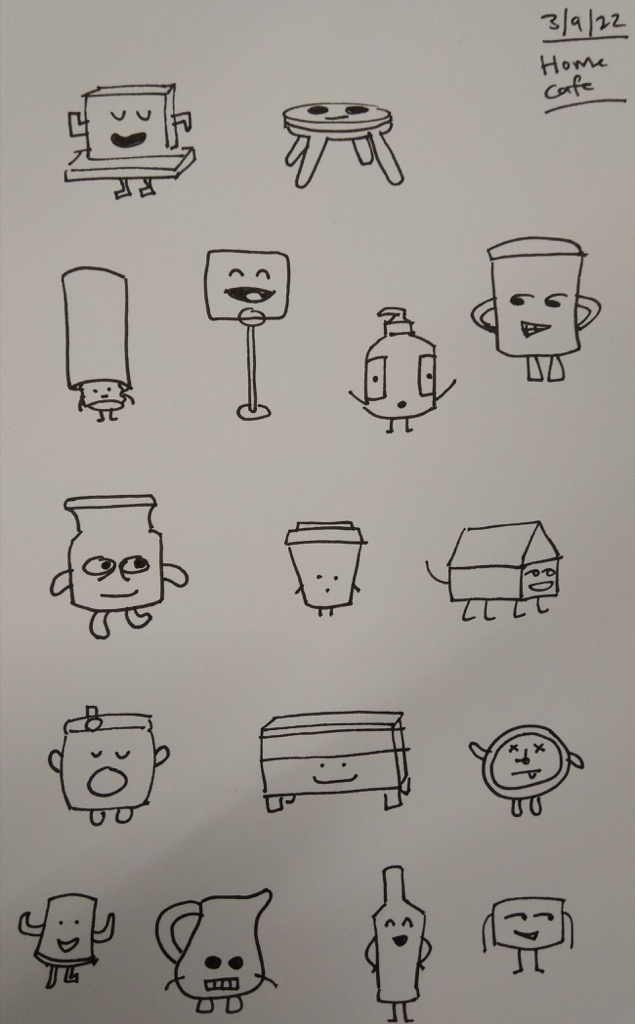 3/9/22
Home
Cafe